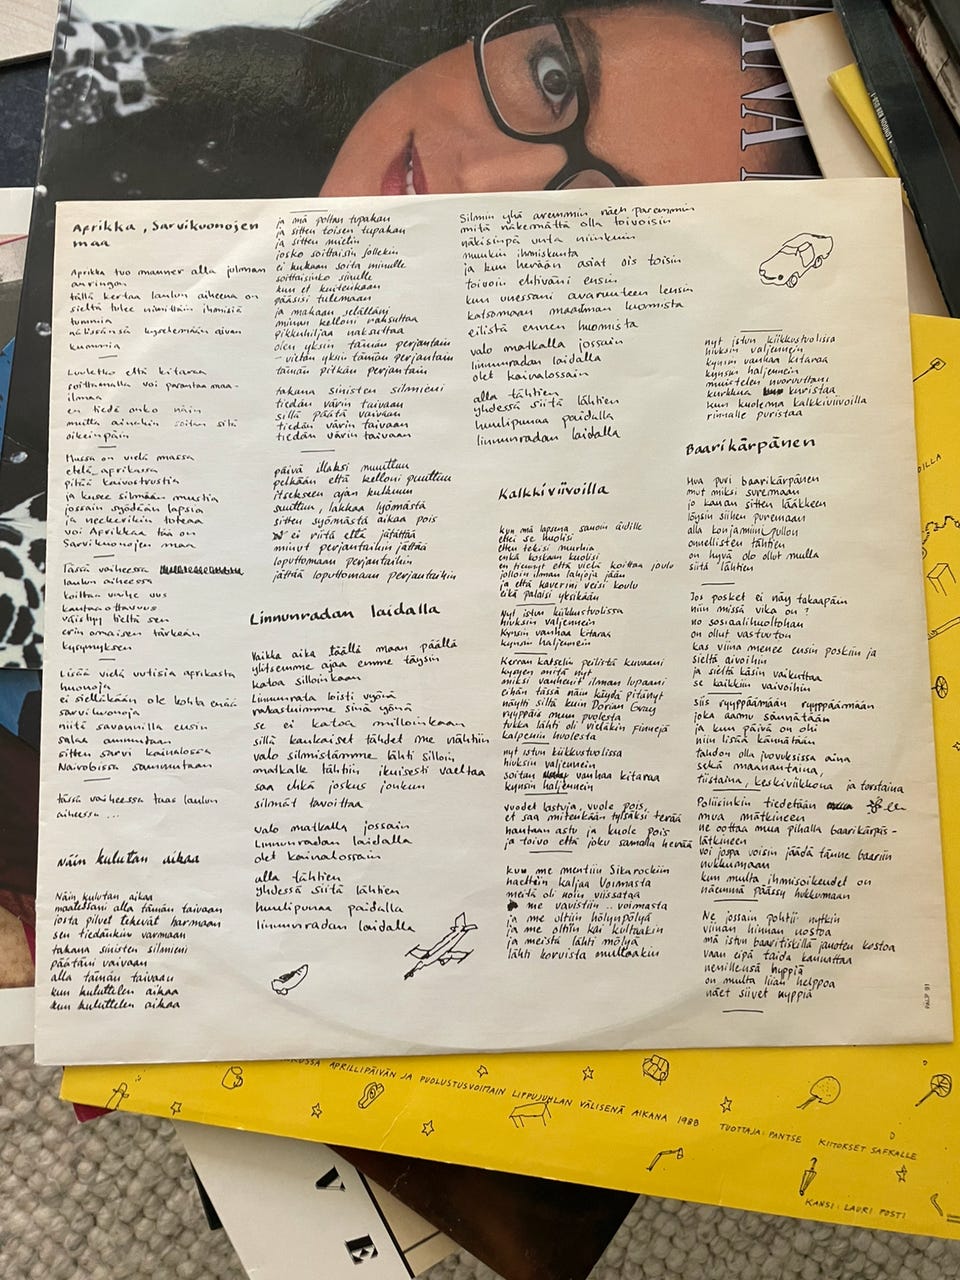 Aprikka, Sarvikuonojen
maa
Aprikka tuo manner alla julman
auringon
tällä kertaa laulun aiheena on
sieltä tulee nimittäin ihmisiä
tummia
näkissänsä kyselemään aivan
kummia
Luuletko että kitaraa
soittamalla voi parantaa maa-
ilmaa
en tiedä onko näin
mutta ainahin soitan sitä
oikeinpäin
Mussa on vielä massa
etelä aprikassa
pitää kaivostrustia
ja kusee silmään mustia
jossain syödään lapsia
ja neekerikin toteaa
voi Aprikkaa tää on
Sarvikuonojen maa
Tässä vaiheessa
laulun aiheessa
koittaa vaihe uus
kantaaottavuus
väistyy tieltä sen
erin omaisen tärkeän
kysymyksen
Lisää vielä uutisia aprikasta
huonoja
ei sielläkään ole kohta enää
sarvikuonoja
niitä savannilla ensin
salaa ammutaan
sitten sarvi kainalossa
Nairobissa sammutaan
tässä vaiheessa taas laulun
aiheessa ...
Näin kulutan aikaa
Näin kulutan aikaa
maatessani alla tämän taivaan
josta pilvet tekevät harmaan
sen tiedänkin varmaan
takana sinisten silmieni
päätäni vaivaan
alla tämän taivaan
kun kuluttelen aikaa
kun kuluttelen aikaa
ja mä poltan tupakan
ja sitten toisen tupakan
ja sitten mietin
josko soittaisin jollekin
ei kukaan soita minulle
soittaisinko sinulle
kun et kuitenkaan
pääsisi tulemaan
ja makaan selälläni
minun kelloni raksuttaa
pikkuhiljaa naksuttaa
olen yksin tämän perjantain
- vietän yksin tämän perjantain
tämän pitkän perjantain
takana sinisten silmieni
tiedän värin taivaan
sillä päätä vaivaan
tiedän värin taivaan
tiedän värin taivaan
päivä illaksi muuttuu
pelkään että kelloni puuttuu
itsekseen ajan kulkuun
suuttuu, lakkaa lyömästä
sitten syömästä aikaa pois
ei riitä että jätättää
minut perjantaihin jättää
loputtomaan perjantaihin
jättää loputtomaan perjantaihin
Linnunradan laidalla
Vaikka aika täällä maan päällä
ylitsemme ajaa emme täysin
katoa silloinkaan
Linnunrata loisti vyönä
rakastuimme sinä yönä
se ei katoa milloinkaan
sillä kaukaiset tähdet me nähtiin
valo silmistämme lähti silloin
matkalle tähtiin ikuisesti vaeltaa
saa ehkä joskus jonkun
silmät tavoittaa
valo matkalla jossain
Linnunradan laidalla
olet kainalossain
alla tähtien
yhdessä siitä lähtien
huulipunaa paidalla
linnunradan laidalla
Silmin yhä avemmin näen paremmin
mitä näkemättä olla toivoisin
näkisinpä unta niinkuin
muukin ihmiskunta
ja kun herään asiat ois toisin
toivoin ehtiväni ensin
kun unessani avaruuteen lensin
katsomaan maailman luomista
eilistä ennen huomista
valo matkalla jossain
linnunradan laidalla
olet kainalossain
alla tähtien
yhdessä siitä lähtien
huulipunaa paidalla
linnunradan laidalla
Kalkkiviivoilla
Kun mä lapsena sanoin äidille
ettei se huolisi
etten tekisi murhia
enkä koskaan kuolisi
en tiennyt että vielä koittaa joulu
jolloin ilman lahjoja jään
ja että kaverini veisi koulu
eikä palaisi yksikään
Nyt istun kiikkustuolissa
hiuksin valjennein
Kynsin vanhaa kitaraa
kynsin haljennein
Kerran katselin peilistä kuvaani
kysyen mitä nyt
miksi vanhenit ilman lupaani
eihän tässä näin käydä pitänyt
näytti siltä kuin Dorian Gray
ryyppäis mun puolesta
tukka lähti oli vieläkin finnejä
kalpenin huolesta
nyt istun kiikkustuolissa
hiuksin valjennein
soitan vanhaa kitaraa
kynsin haljennein
vuodet lastuja, vuole pois
et saa mitenkään tylsäksi terää
hautaan astu ja kuole pois
ja toivo että joku samalla herää
kun me mentiin Sikarockiin
haettiin kaljaa Voimasta
meitä oli noin viissataa
me vaistiin .. voimasta
ja me oltiin hölynpölyä
ja me oltiin kai kultaakin
ja meistä lähti mölyä
lähti korvista multaakin
nyt istun kiikkustuolissa
hiuksin valjennein
kynsin vanhaa kitaraa
kynsin haljennein
muistelen nuoruuttani
kurkkua kuristaa
kun kuolema kalkkiviivoilla
rinnalle puristaa
Baarikärpänen
Mua puri baarikärpänen
mut miksi suremaan
jo kauan sitten lääkkeen
löysin siihen puremaan
alla konjamiinipullon
onnellisten tähtien
on hyvä olo ollut mulla
siitä lähtien
Jos posket ei näy takaapäin
niin missä vika on?
no sosiaalihuoltohan
on ollut vastuuton
kas viina menee ensin poskiin ja
sieltä aivoihin
ja sieltä käsin vaikuttaa
se kaikkiin vaivoihin
siis ryyppäämään ryyppäämään
joka aamu sännätään
ja kun päivä on ohi
niin lisää kännätään
tahdon olla juovuksissa aina
sekä maanantaina,
tiistaina, keskiviikkona ja torstaina
Poliisinkin tiedetään
mua mätkineen
ne oottaa mua pihalla baarikärpäs-
lätkineen
voi jospa voisin jäädä tänne baariin
nukkumaan
kun multa ihmisoikeudet on
näemmä päässy hukkumaan
Ne jossain pohtii nytkin
viinan hinnan nostoa
mä istun baaritiskillä janoten kostoa
vaan eipä taida kannattaa
nenillensä hyppiä
on multa liian helppoa
näet siivet nyppiä
PALP 91
LONDON 828 059-1
APRILLIPÄIVÄN JA PUOLUSTUSVOIMAIN LIPPUJUHLAN VÄLISENÄ AIKANA 1988
TUOTTAJA: PANTSE KIITOKSET SAFKALLE
KANSI: LAURI POSTI
V E